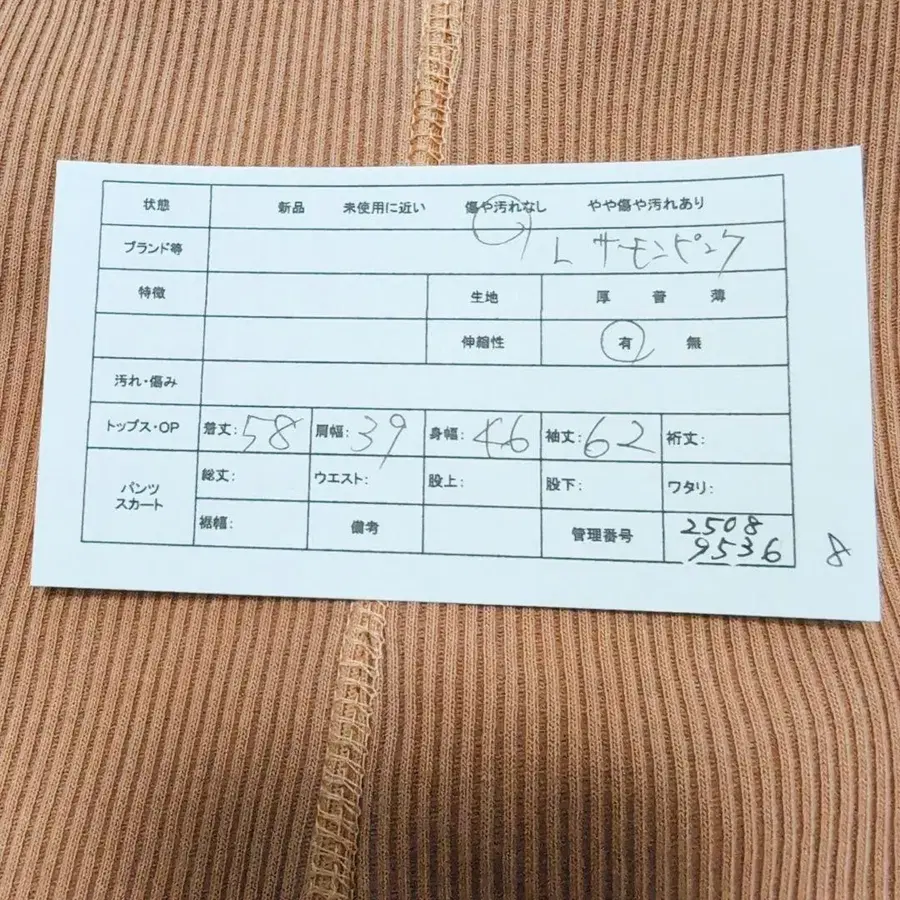 状態 新品 未使用に近い 傷や汚れなし やや傷や汚れあり
ブランド等 L サーモンピンク
特徴 生地 厚 普 薄
伸縮性 有 無
汚れ・傷み
トップス・OP 着丈:58 肩幅:39 身幅:46 袖丈:62 裄丈:
パンツ スカート 総丈: ウエスト: 股上: 股下: ワタリ:
裾幅: 備考 管理番号 2508
9536 8